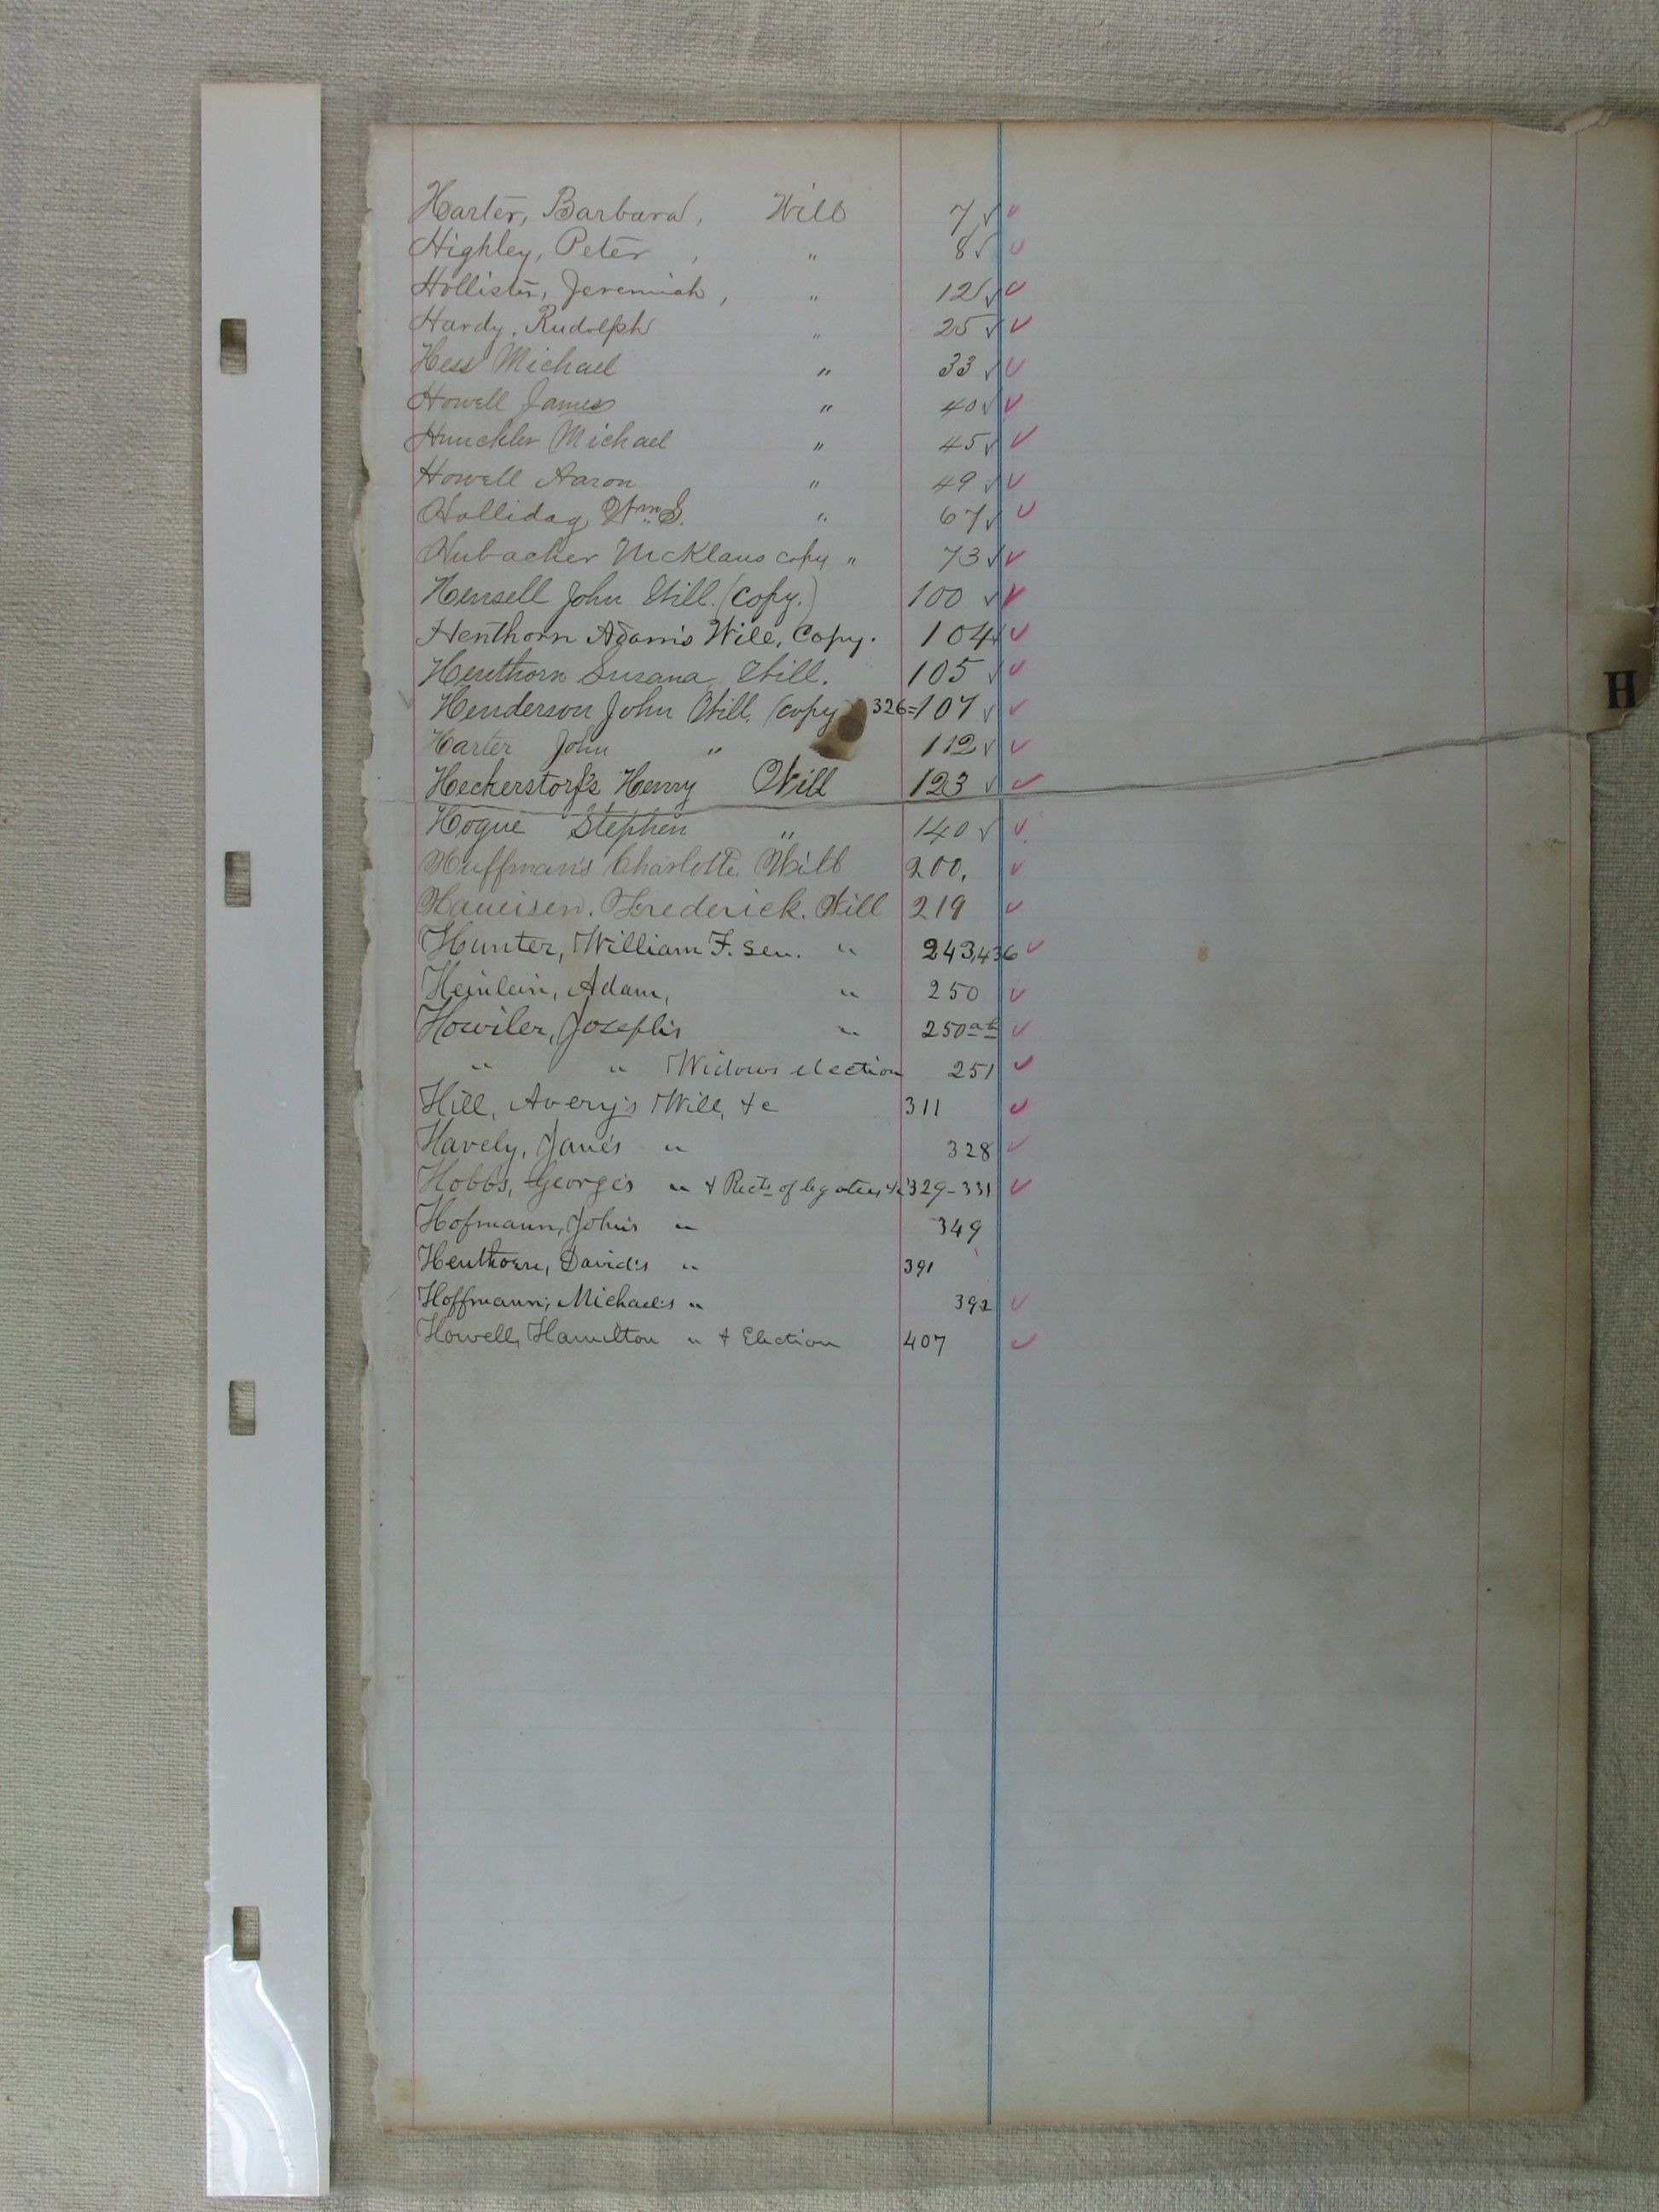 Harter, Barbara, Will 7 ✓ ✓
Highley, Peter, " 8 ✓ ✓
Hollister, Jeremiah, " 12 ✓ ✓
Hardy, Rudolph " 25 ✓ ✓
Hess Michael " 33 ✓ ✓
Howell James " 40 ✓ ✓
Hunckler Michael " 45 ✓ ✓
Howell Aaron " 49 ✓ ✓
Holliday, Wm S. " 67 ✓ ✓
Hubacher Nicklaus copy " 73 ✓ ✓
Hensell John Will. (Copy.) 100 ✓ ✓
Henthorn Adam's Will, Copy. 104 ✓ ✓
Henthorn Susana Will. 105 ✓ ✓
✓ Henderson John Will, (copy) 326=107 ✓ ✓
H
Harter John " 112 ✓ ✓
Heckerstorf's Henry Will 123 ✓ ✓
Hogue Stephen " 140 ✓ ✓
Huffman's Charlotte. Will 200. ✓
Haueisen. Frederick. Will 219 ✓
Hunter, William F. Sen. " 243,436 ✓
Heinlein, Adam, " 250 ✓
Howiler, Joseph's " 250 ✓
" " Widows election 251 ✓
Hill, Avery's Will, &c 311 ✓
Havely, Jane's " 328 ✓
Hobbs, George's " & Rects of legatees &c 329-331 ✓
Hofmann, John's " 349
Henthorn, David's " 391
Hoffmann, Michael's " 392 ✓
Howell, Hamilton " & Election 407 ✓